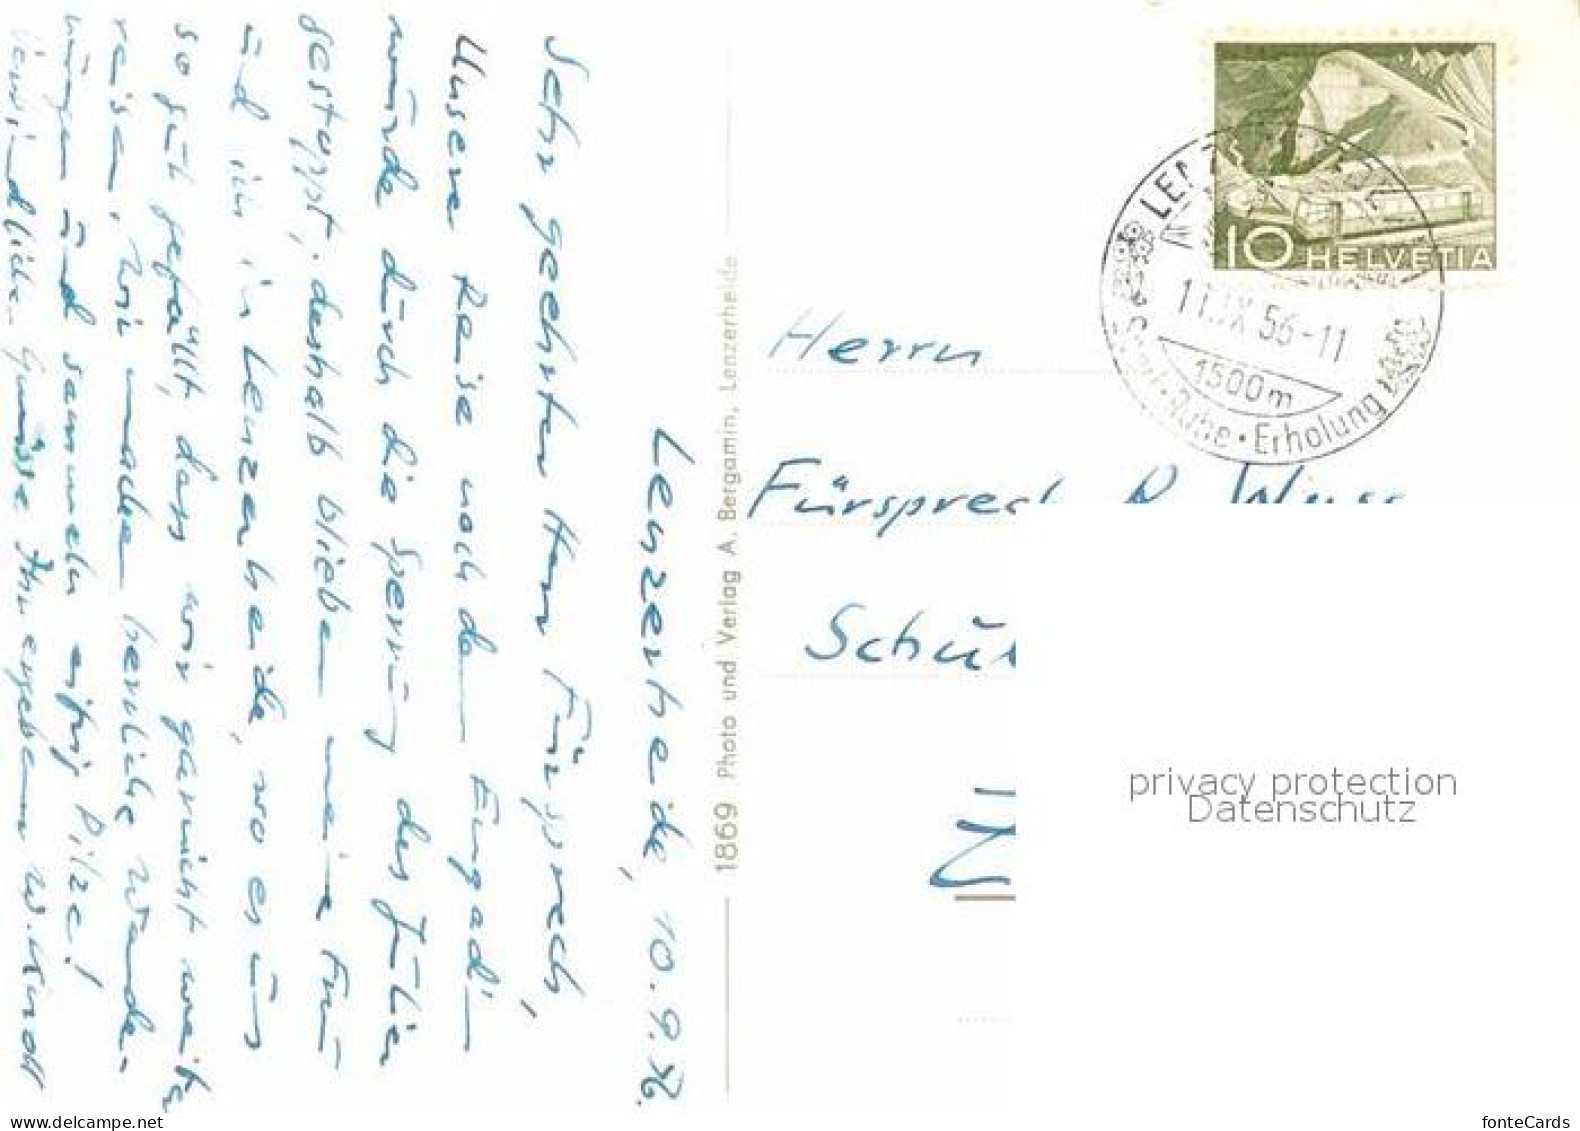 Lenzerheide, 10.9.56.
Sehr geehrter Herr Fürsprech,
Unsere Reise nach dem Engadin
wurde durch die Sperrung des Julier
gestoppt, deshalb blieben meine Frau
und ich in Lenzerheide, wo es uns
so gut gefällt, dass wir gar nicht weiter
reisen. Wir machen herrliche Wande-
rungen und sammeln eifrig Pilze!
Freundliche Grüsse Ihr ergebener W.
1869 Photo und Verlag A. Bergamin, Lenzerheide
10 HELVETIA
11.IX.56-11
1500m
Sport·Ruhe·Erholung
Herrn
Fürsprech
privacy protection
Datenschutz
www.delcampe.net
fonteCards